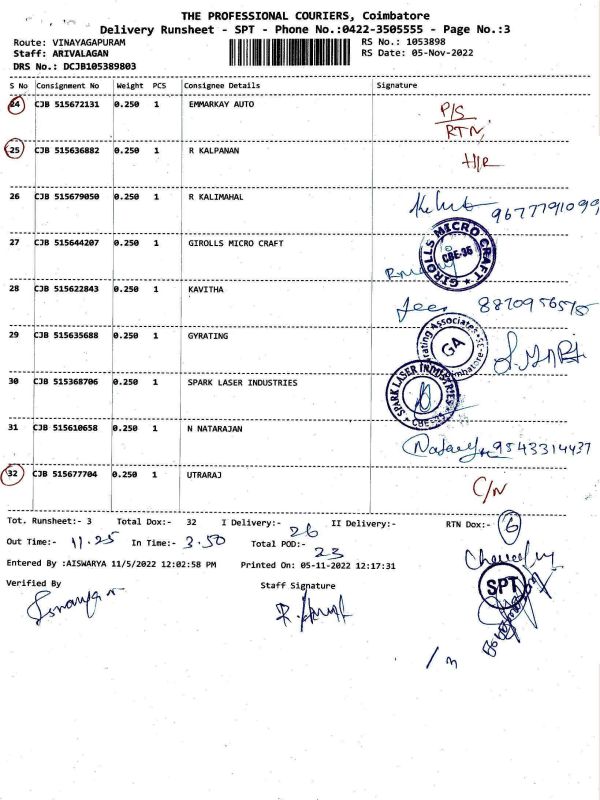 THE PROFESSIONAL COURIERS, Coimbatore
Delivery Runsheet - SPT - Phone No.:0422-3505555 - Page No.:3
Route: VINAYAGAPURAM RS No.: 1053898
Staff: ARIVALAGAN RS Date: 05-Nov-2022
DRS No.: DCJB105389803
S No Consignment No Weight PCS Consignee Details Signature
24 CJB 515672131 0.250 1 EMMARKAY AUTO P/S
RTN
25 CJB 515636882 0.250 1 R KALPANAN H/R
26 CJB 515679050 0.250 1 R KALIMAHAL 9677791099
27 CJB 515644207 0.250 1 GIROLLS MICRO CRAFT GIROLLS MICRO CRAFT CBE-35
28 CJB 515622843 0.250 1 KAVITHA 8870956575
29 CJB 515635688 0.250 1 GYRATING GA
30 CJB 515368706 0.250 1 SPARK LASER INDUSTRIES SPARK LASER INDUSTRIES
31 CJB 515610658 0.250 1 N NATARAJAN 9543314437
32 CJB 515677704 0.250 1 UTRARAJ C/N
Tot. Runsheet:- 3 Total Dox:- 32 I Delivery:- 26 II Delivery:- RTN Dox:- 6
Out Time:- 11.25 In Time:- 3.50 Total POD:- 23
Entered By :AISWARYA 11/5/2022 12:02:58 PM Printed On: 05-11-2022 12:17:31
Verified By Staff Signature SPT